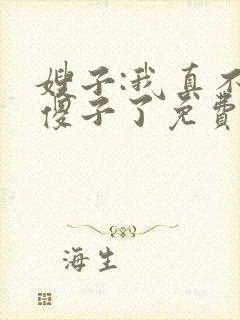 嫂子:我真不
傻子了免费
海生